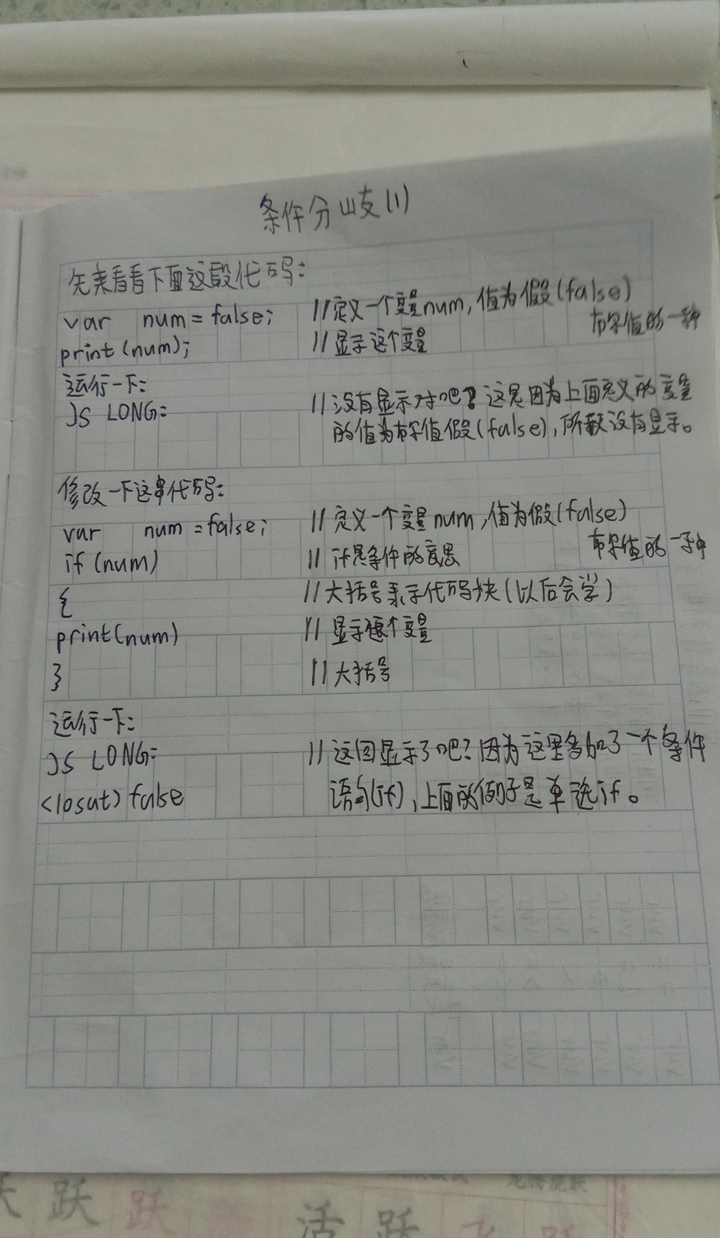 条件分岐(1)
先来看看下面这段代码:
var num = false; //定义一个变量num,值为假(false)
布尔值的一种
print(num); //显示这个变量
运行一下:
JS LONG: //没有显示对吧?这是因为上面定义的变量
的值为布尔值假(false),所以没有显示。
修改一下这串代码:
var num = false; //定义一个变量num,值为假(false)
布尔值的一种
if(num) //if是条件的意思
{ //大括号表示代码块(以后会学)
print(num) //显示这个变量
} //大括号
运行一下:
JS LONG: //这回显示了吧?因为这里多加了一个条件
<losat) false 语句(if),上面的例子是单选if。
跃 跃
活 跃 飞 跃